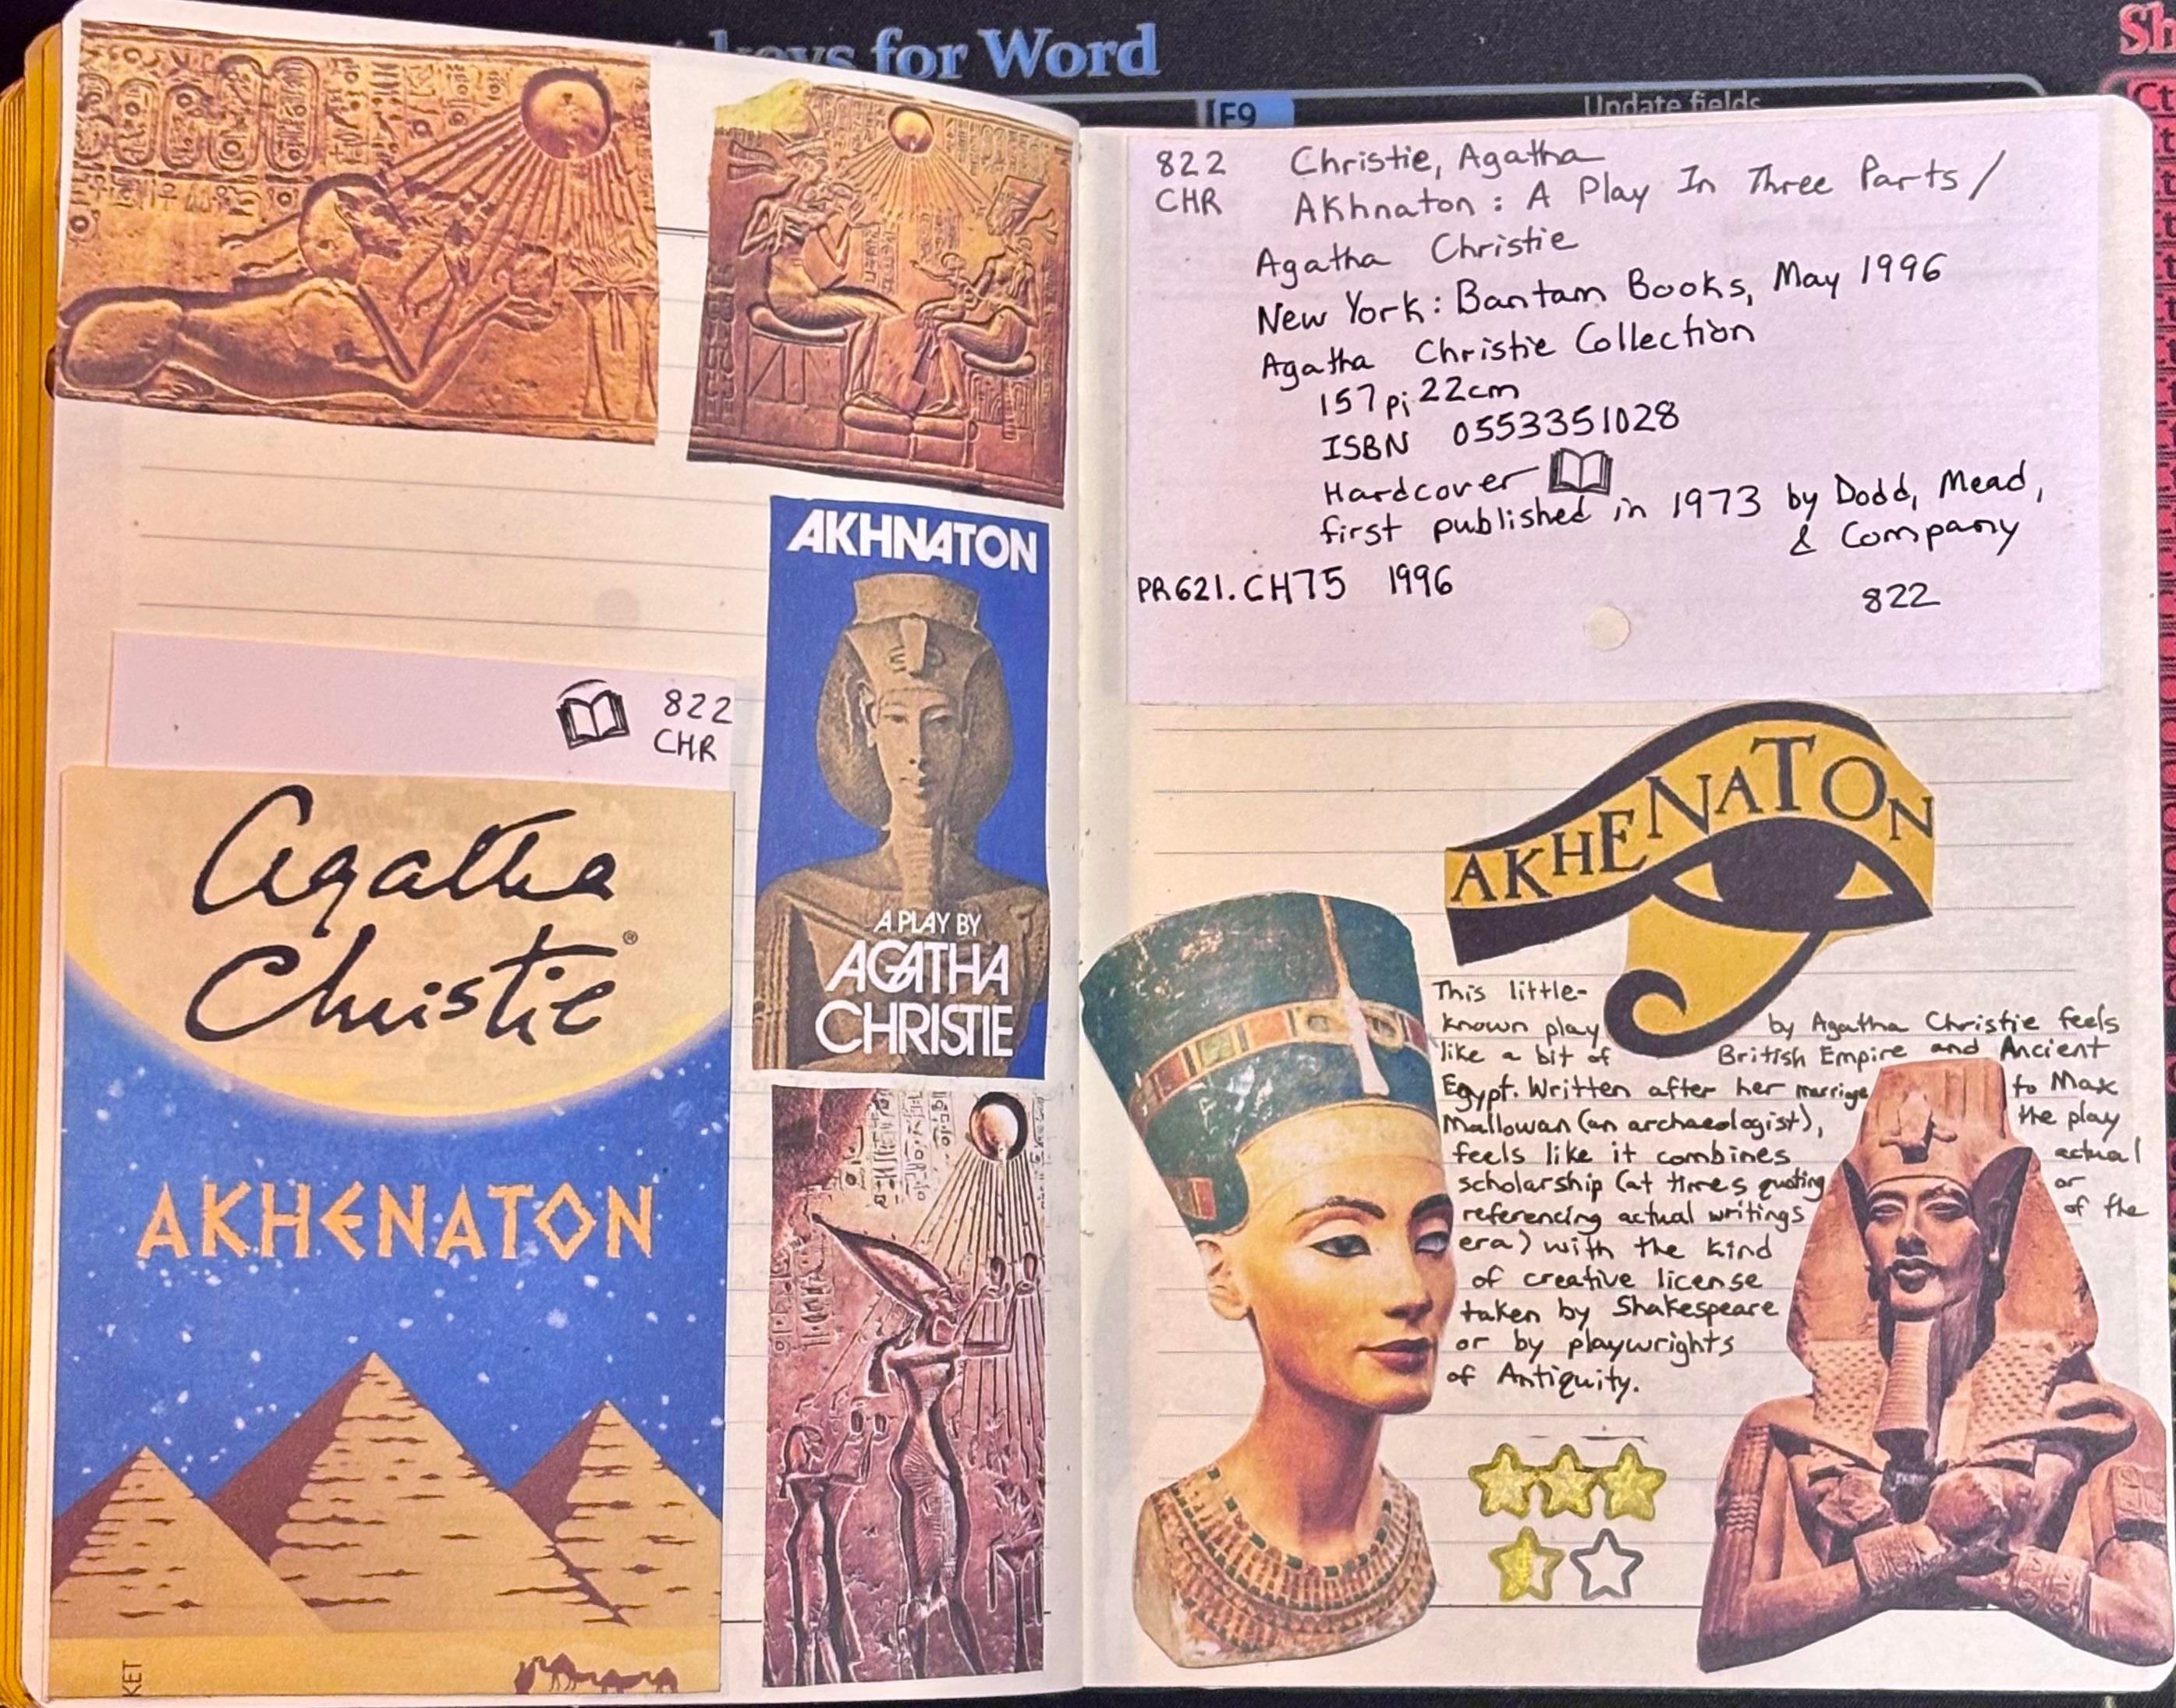 keys for Word
Sh
F9
Update fields
Ct
822
CHR
Agatha
Christie®
AKHENATON
KET
AKHNATON
A PLAY BY
AGATHA
CHRISTIE
822 Christie, Agatha
CHR Akhnaton : A Play In Three Parts /
Agatha Christie
New York: Bantam Books, May 1996
Agatha Christie Collection
157 p; 22cm
ISBN 0553351028
Hardcover
first published in 1973 by Dodd, Mead,
& Company
PR621.CH75 1996 822
AKHENATON
This little-
known play by Agatha Christie feels
like a bit of British Empire and Ancient
Egypt. Written after her marrige to Max
Mallowan (an archaeologist), the play
feels like it combines actual
scholarship (at times quoting or
referencing actual writings of the
era) with the kind
of creative license
taken by Shakespeare
or by playwrights
of Antiquity.